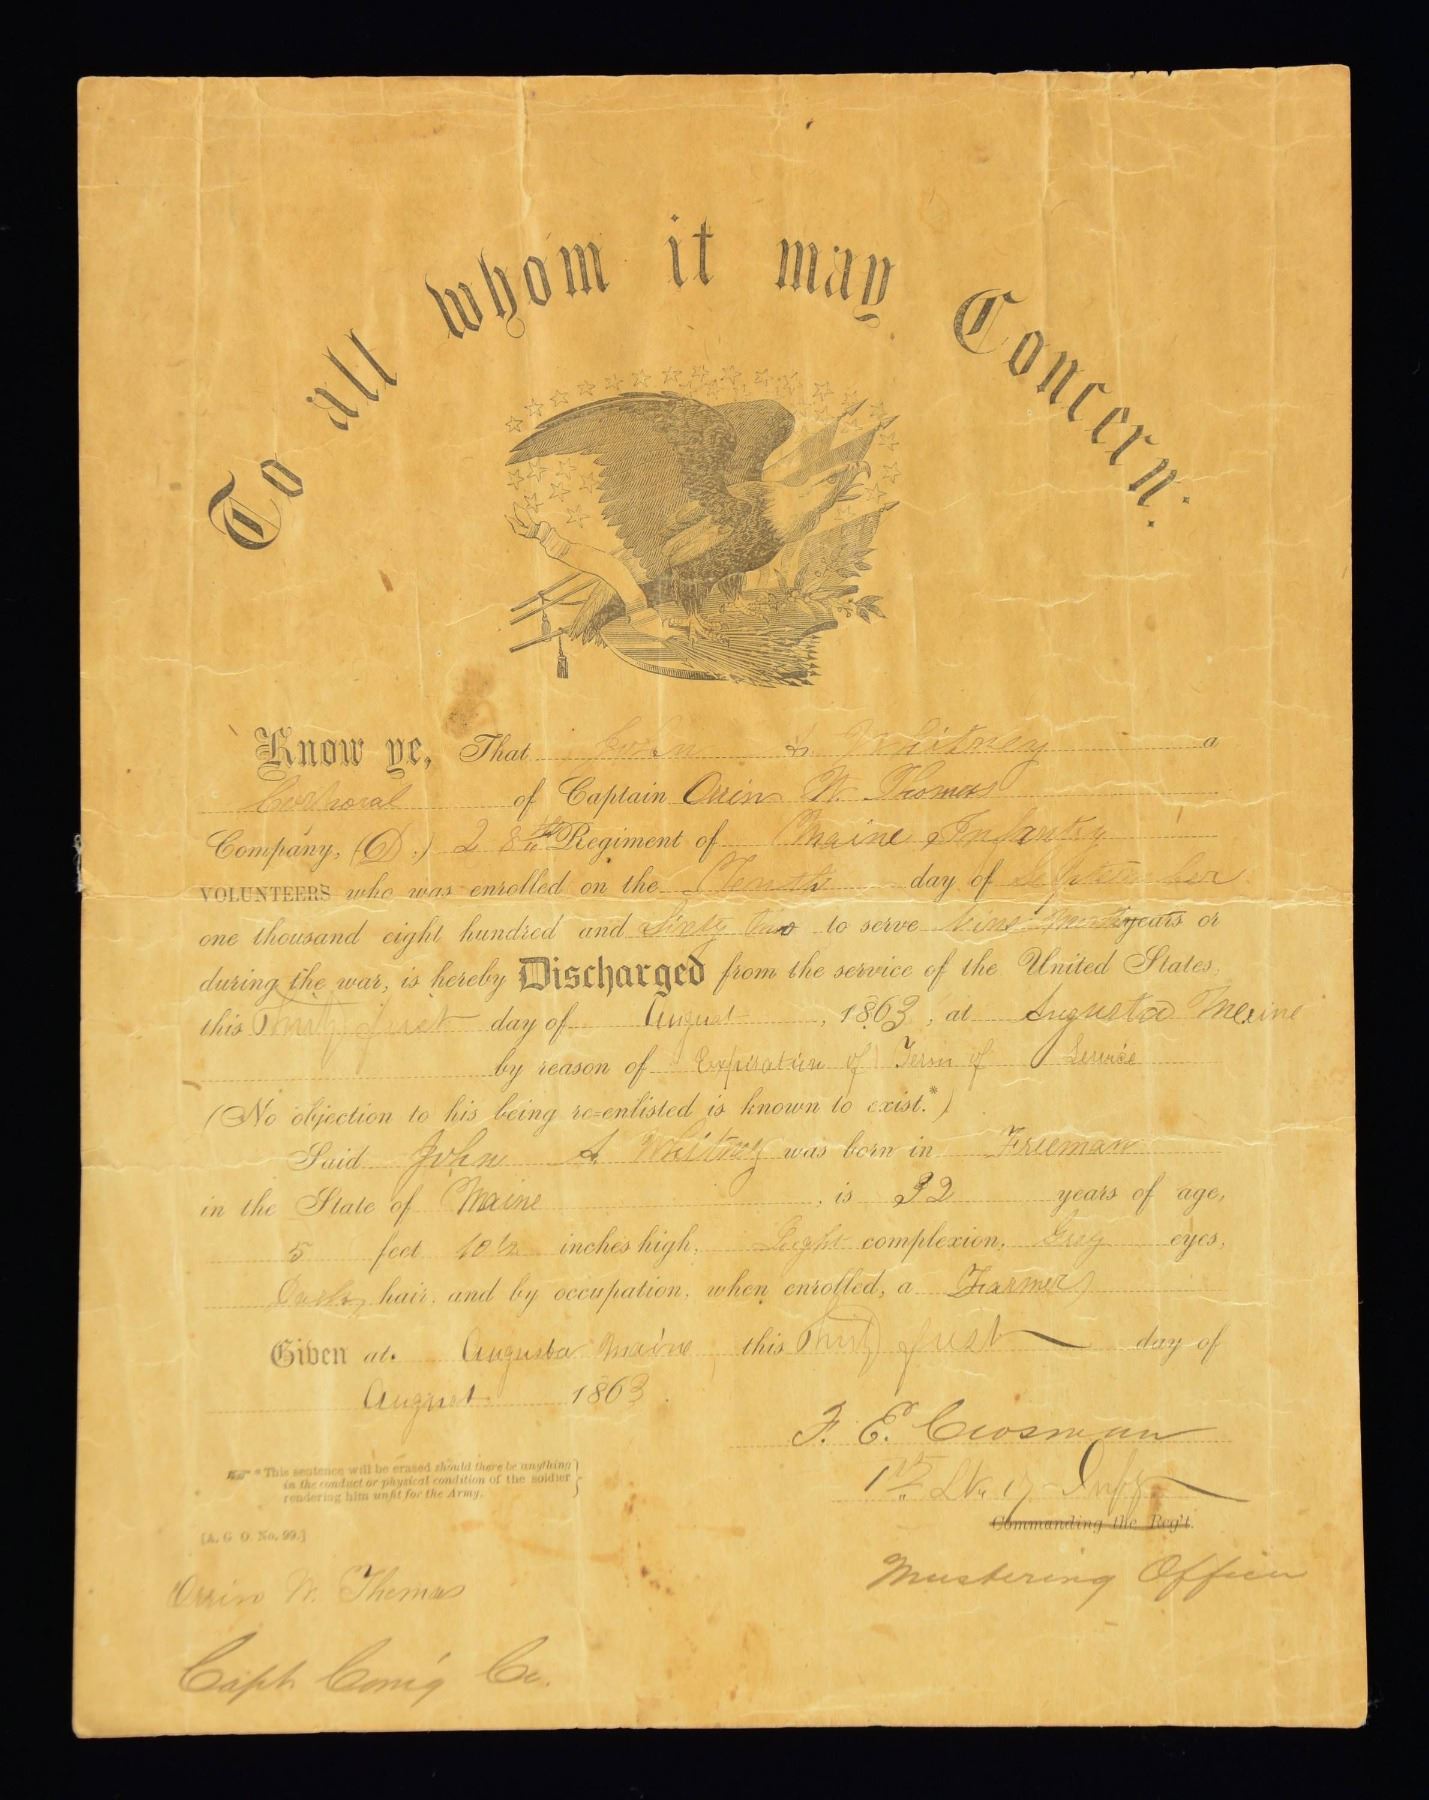 To all whom it may Concern:
Know ye, That John Whitney a
Corporal of Captain Orrin W. Thomas
Company, (D.) 28th Regiment of Maine Infantry
VOLUNTEERS who was enrolled on the Tenth day of September
one thousand eight hundred and Sixty two to serve Nine Months years or
during the war, is hereby Discharged from the service of the United States,
this Thirty first day of August, 1863, at Augusta Maine
by reason of Expiration of Term of Service
(No objection to his being re-enlisted is known to exist.*)
Said John Whitney was born in Freeman
in the State of Maine, is 32 years of age,
5 feet 10½ inches high, Light complexion, Grey eyes,
hair, and by occupation, when enrolled, a Farmer
Given at Augusta Maine, this Thirty first day of
August 1863.
F. E. Crosman
1st Lt. 17 Infy
Commanding the Reg't.
Mustering Officer
* This sentence will be erased should there be anything
in the conduct or physical condition of the soldier
rendering him unfit for the Army.
[A. G. O. No. 99.]
Orrin W. Thomas
Capt. Com'g Co.